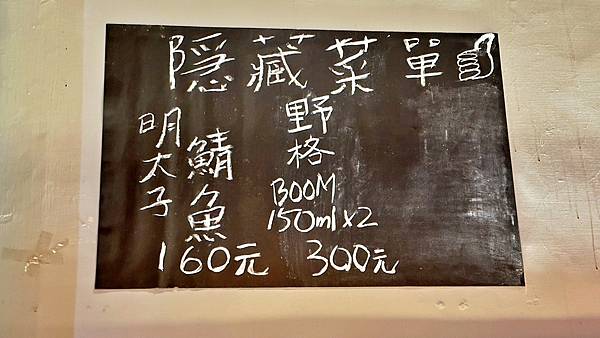 隱藏菜單
明太子
鯖魚
160元
野格
BOOM
150ml x2
300元